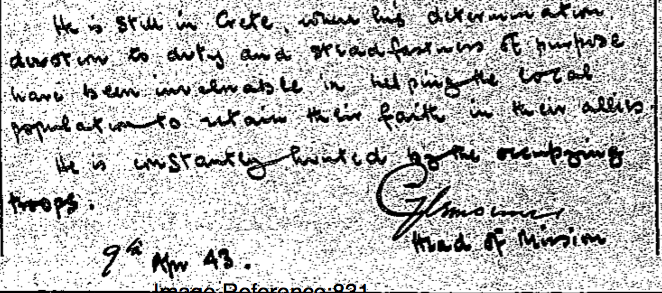 He is still in Crete, where his determination,
devotion to duty and steadfastness of purpose
have been invaluable in helping the local
population to retain their faith in their allies.
He is constantly hunted by the occupying
troops.
Head of Mission
9th Apr 43.
Image Reference:831